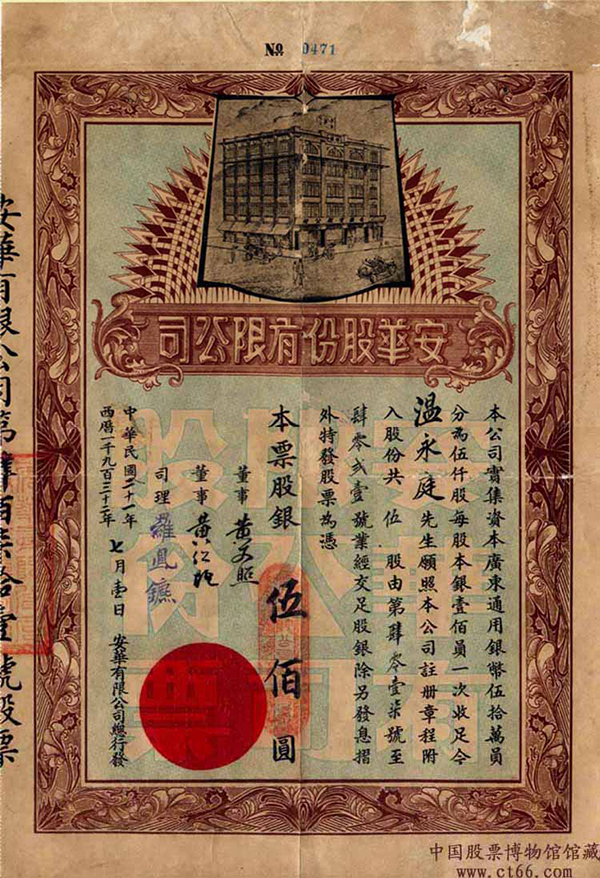 № 0471
安華股份有限公司
本公司實集資本廣東通用銀幣伍拾萬員
分為伍仟股每股本銀壹佰員一次收足今
溫永庭先生願照本公司註冊章程附
入股份共伍股由第肆零壹柒號至
肆零弍壹號業經交足股銀除另發息摺
外特發股票為憑
本票股銀伍佰圓
董事 黃文照
董事 黃仁
司理 羅鳳鑣
中華民國二十一年
西曆一千九百三十二年
七月壹日
安華有限公司總行發
安華有限公司第肆佰柒拾壹號股票
中国股票博物馆馆藏
www.ct66.com